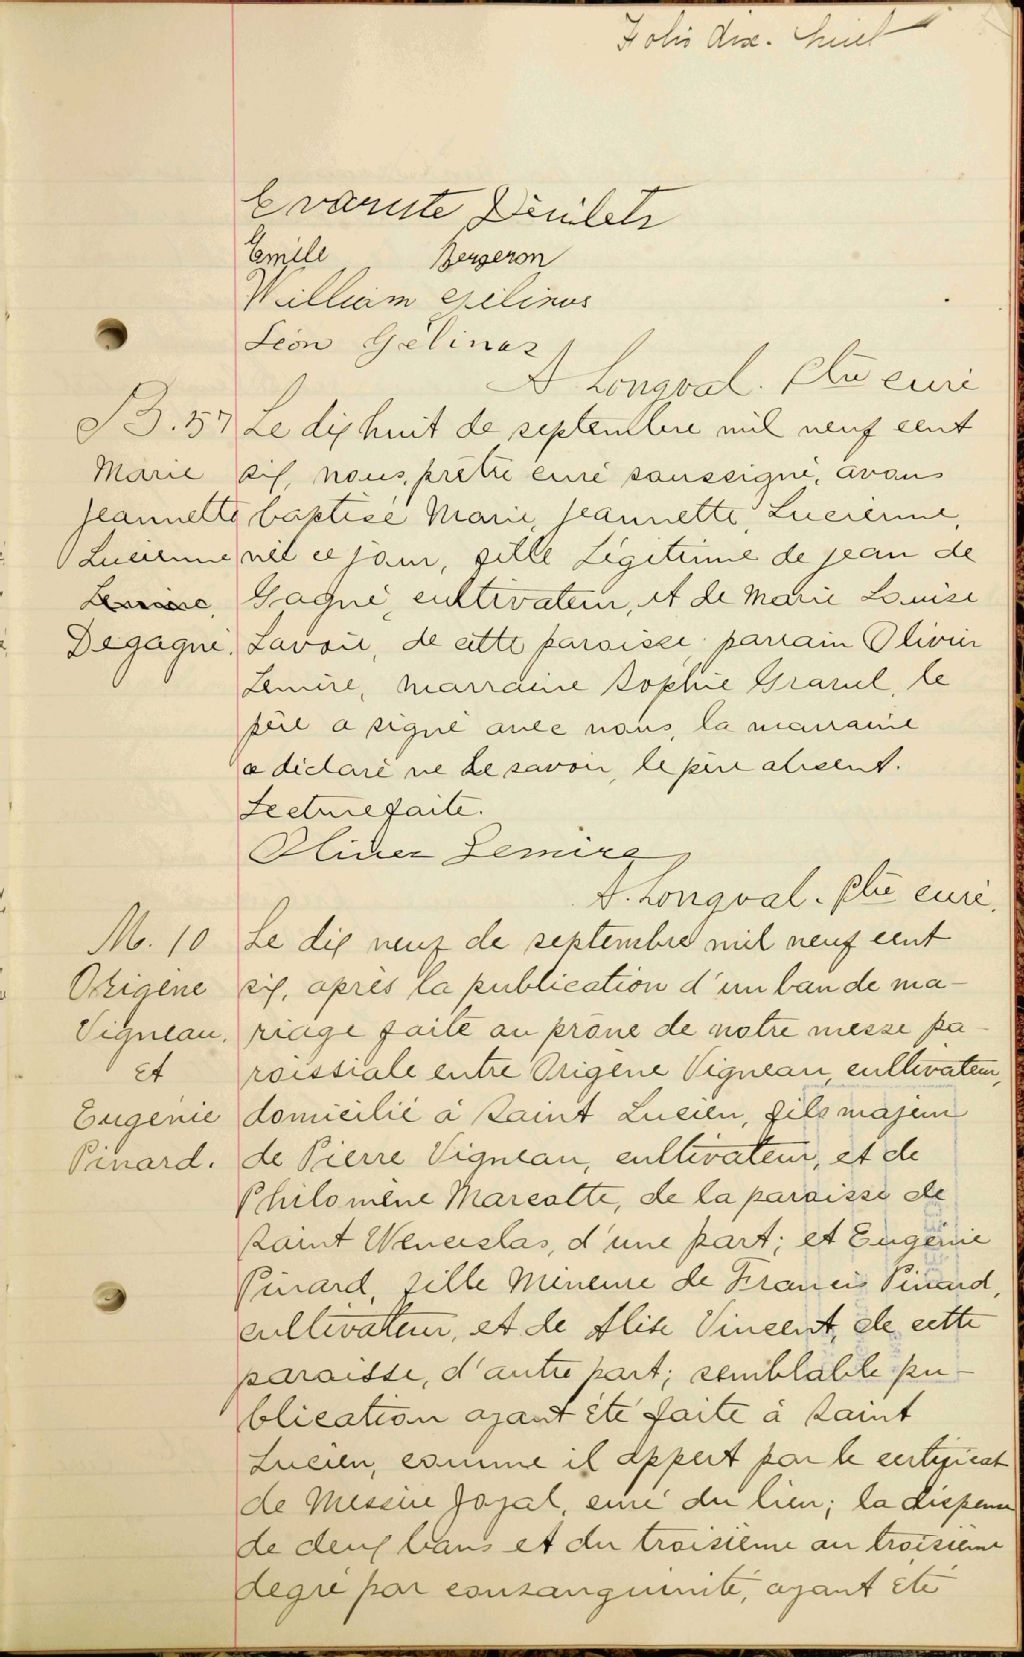 Folio dix-huit
Evariste Désilets
Emile Bergeron
William Gélinas
Léon Gélinas
A Longval. Ptre curé
B. 57
Marie
Jeannette
Lucienne
Degagné.
Le dix huit de septembre mil neuf cent
six, nous, prêtre curé soussigné, avons
baptisé Marie, Jeannette, Lucienne,
née ce jour, fille légitime de Jean de
Gagné, cultivateur, et de Marie Louise
Lavoie, de cette paroisse, parrain Olivier
Lemire, marraine Sophie Gravel, le
père a signé avec nous, la marraine
a déclaré ne le savoir, le père absent.
Lecture faite.
Oliver Lemire
A. Longval. Ptre curé.
M. 10
Origène
Vigneau.
et
Eugénie
Pinard.
Le dix neuf de septembre mil neuf cent
six, après la publication d'un ban de ma-
riage faite au prône de notre messe pa-
roissiale entre Origène Vigneau, cultivateur,
domicilié à Saint Lucien, fils majeur
de Pierre Vigneau, cultivateur, et de
Philomène Marcotte, de la paroisse de
Saint Wenceslas, d'une part; et Eugénie
Pinard, fille mineure de Francis Pinard,
cultivateur, et de Alise Vincent, de cette
paroisse, d'autre part; semblable pu-
blication ayant été faite à Saint
Lucien, comme il appert par le certificat
de Messire Joyal, curé du lieu; la dispense
de deux bans et du troisième au troisième
degré par consanguinité, ayant été